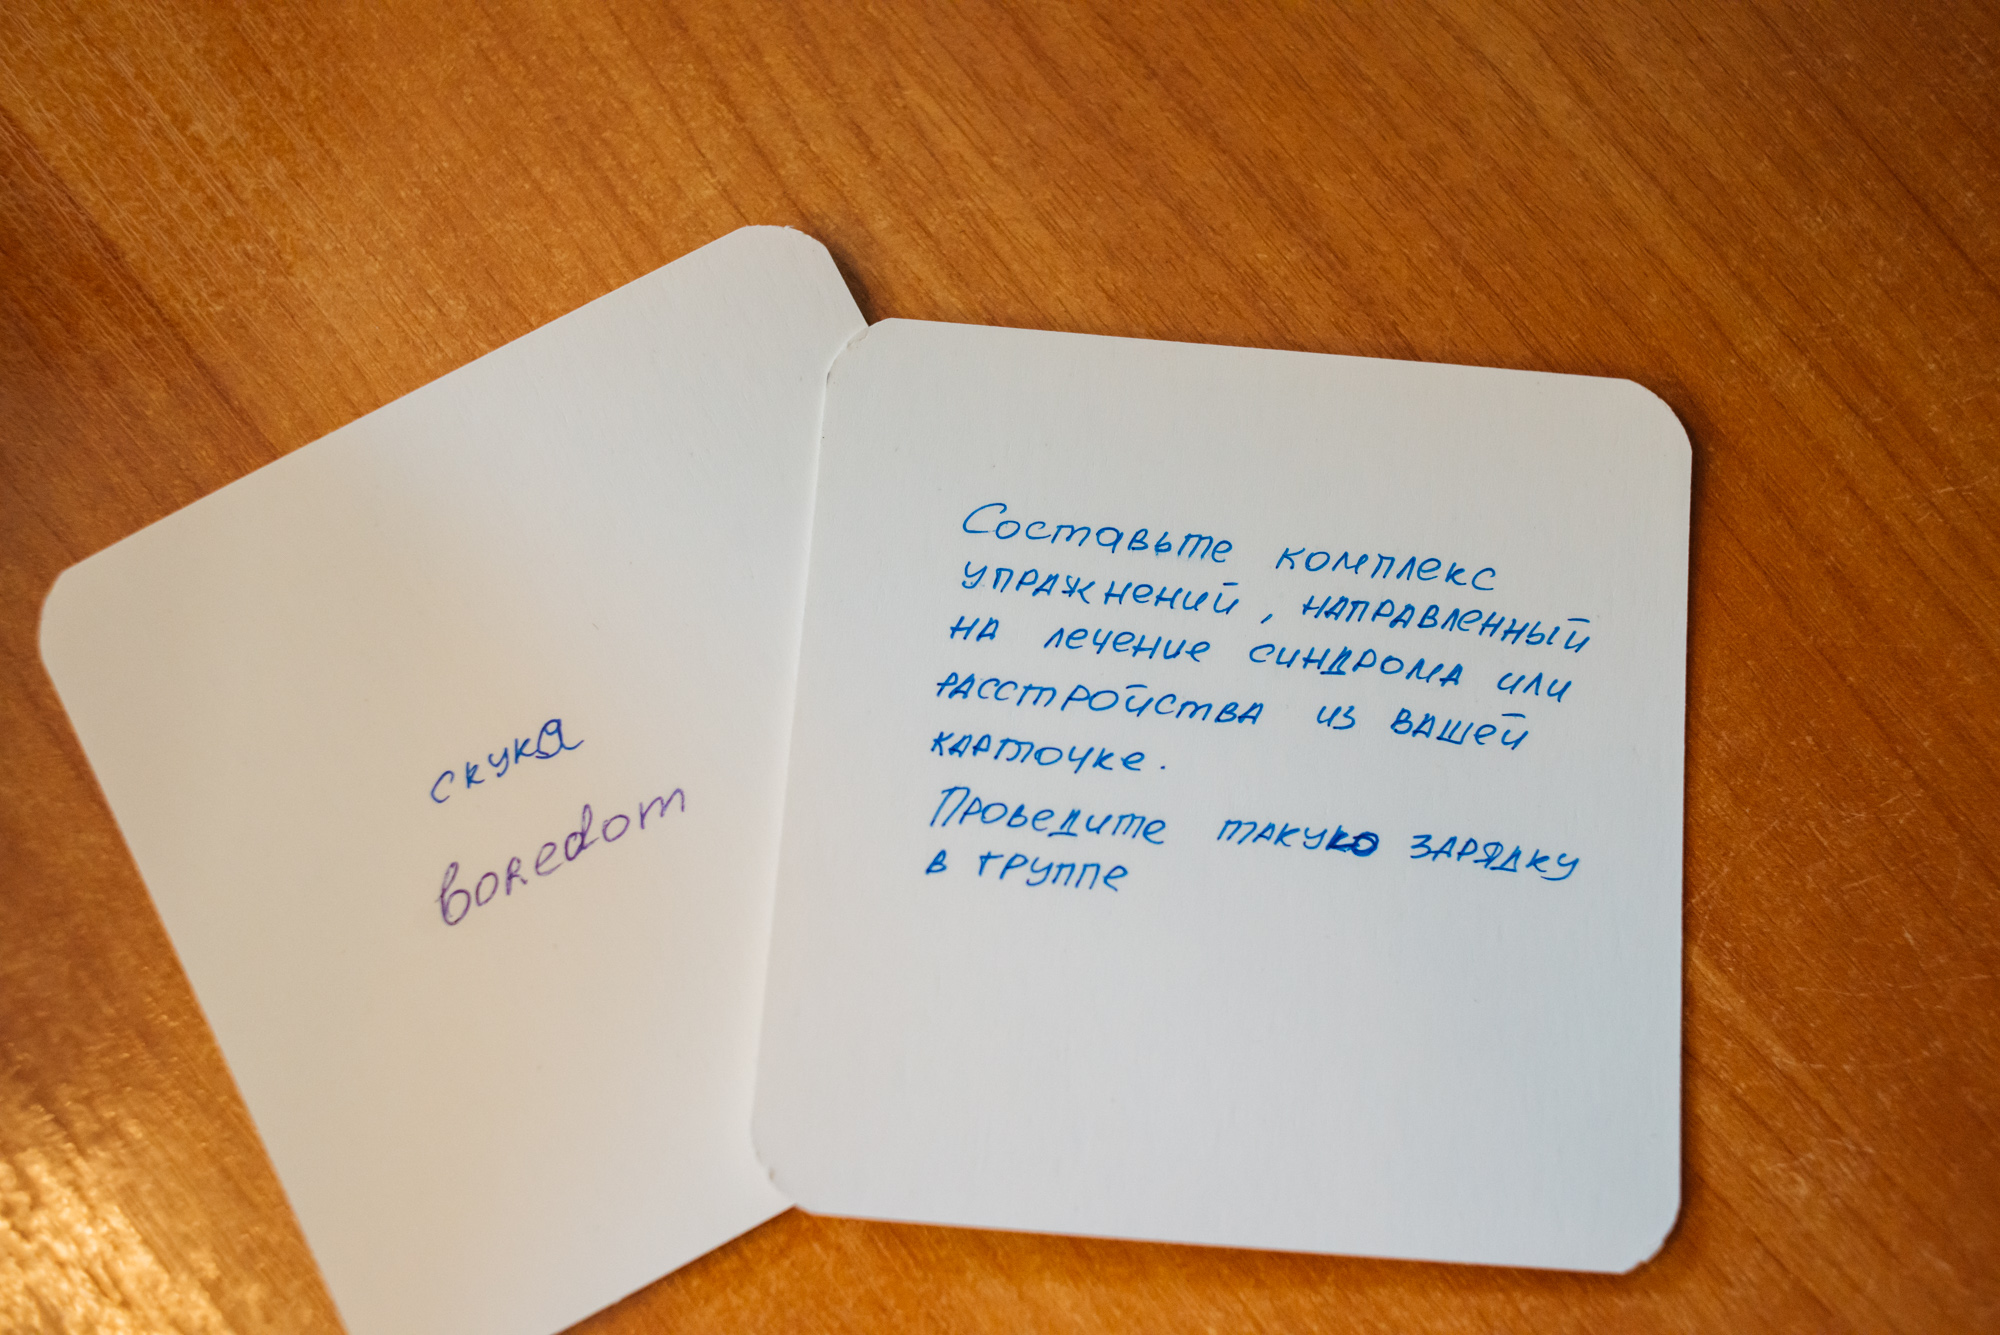 скука
boredom
Составьте комплекс
упражнений, направленный
на лечение синдрома или
расстройства из вашей
карточке.
Проведите такую зарядку
в группе